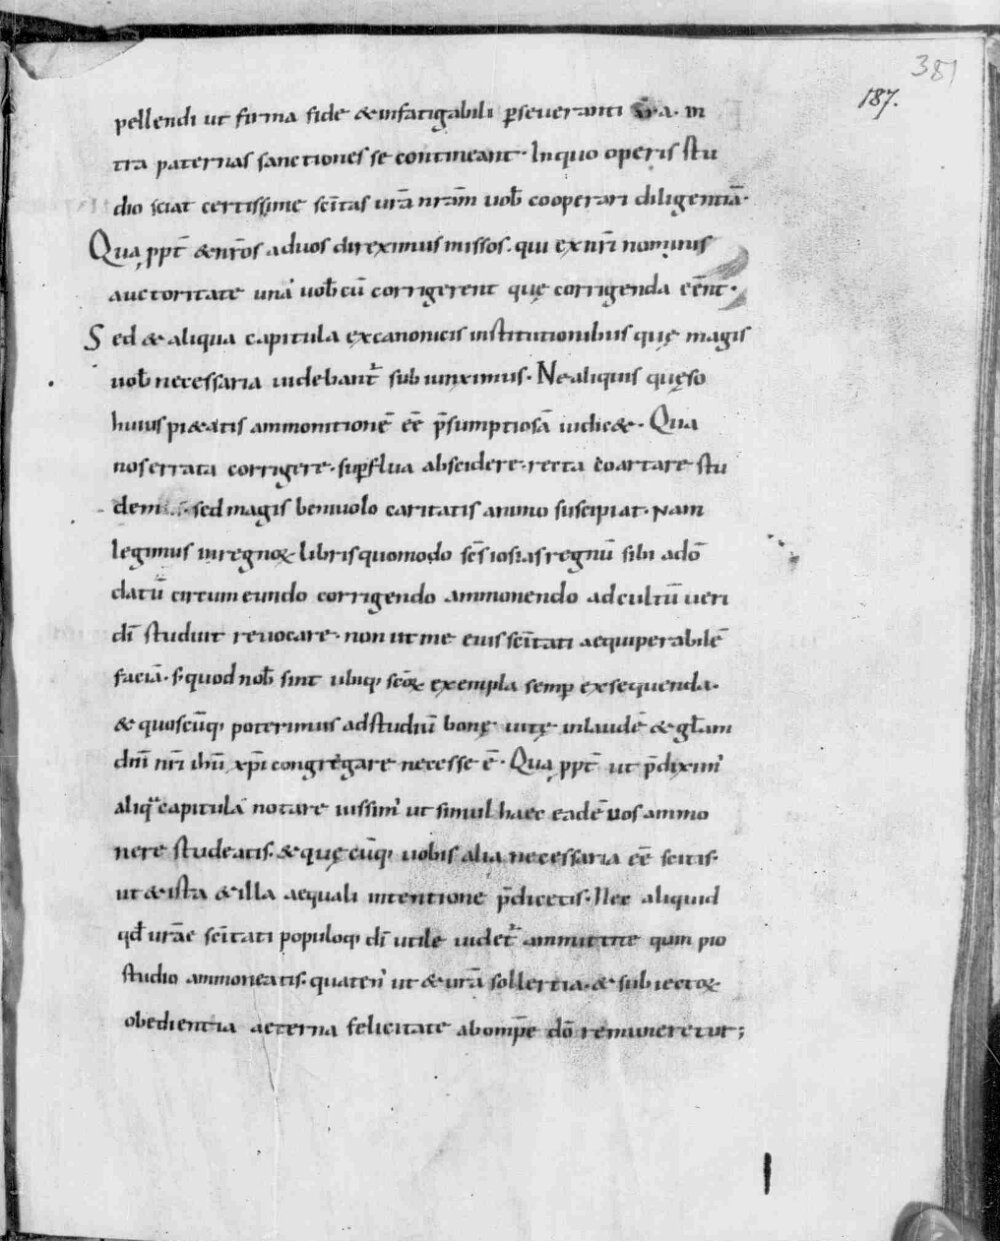 381
187.
pellendi ut firma fide & infatigabili pseueranti a. in
tra paternas sanctiones se contineant. In quo operis stu
dio sciat certissime sc̄itas urā nrām uob̄ cooperari diligentiā.
Quę ppt̄ & nr̄os aduos direximus missos. qui ex nr̄i nominis
auctoritate una uob̄cū corrigerent quę corrigenda eēnt.
Sed & aliqua capitula ex canonicis institutionibus quę magis
uob̄ necessaria uidebant̄ subiunximus. Ne aliquis quęso
huius pi&atis ammonitionē eē p̄sumptiosā iudic&. Qua
nos errata corrigere. supflua abscidere. recta coartare stu
dem sed magis beniuolo caritatis animo suscipiat. Nam
legimus in regnoꝝ libris quomodo sc̄s iosias regnū sibi adō
datū circumeundo corrigendo ammonendo ad cultū ueri
dī studuit reuocare. non ut me eius sc̄itati aequiperabilē
faciā. s; quod nob̄ sint ubiq; sc̄oꝝ exempla semp exsequenda.
& quoscūq; poterimus ad studiū bonę uitę in laudē & gl̄am
dn̄i nr̄i ih̄u xp̄i congregare necesse ē. Qua ppt̄ ut p̄dixim'
aliq; capitula notare iussim' ut simul haec eadē uos ammo
nere studeatis. & quęcūq; uobis alia necessaria eē scitis.
ut & ista & illa aequali intentione p̄dicetis. Nec aliquid
qd̄ urāe sc̄itati populoq; dī utile uidet̄ ammittite qum pio
studio ammoneatis. quaten' ut & urā sollertia. & subiectoꝝ
obedientia aeterna felicitate ab omp̄e dō remuneretur;